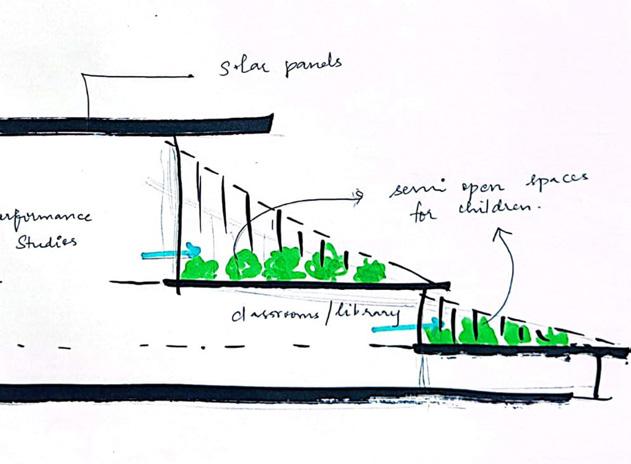 Solar panels
semi open spaces
for children.
erformance
Studies
classrooms/library